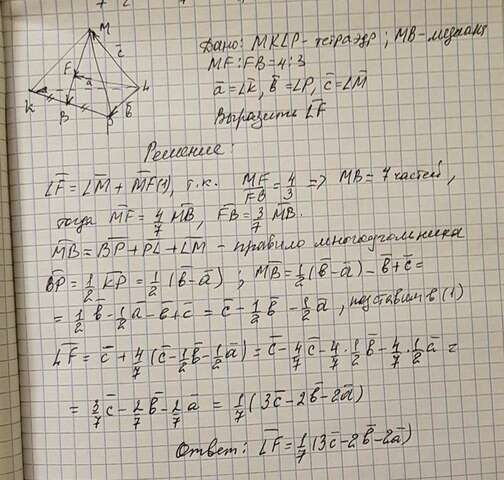 M
c̅
F
a̅
K
L
B
P
b̅
Дано: MKLP - тетраэдр; MB - медиана
MF:FB=4:3
a̅ = L̅K̅, b̅ = L̅P̅, c̅ = L̅M̅
Выразить L̅F̅
Решение:
L̅F̅ = L̅M̅ + M̅F̅ (1), т.к. MF/FB = 4/3 => MB = 7 частей,
тогда M̅F̅ = 4/7 M̅B̅, F̅B̅ = 3/7 M̅B̅.
M̅B̅ = B̅P̅ + PL + LM - правило многоугольника
B̅P̅ = 1/2 K̅P̅ = 1/2 (b̅ - a̅); M̅B̅ = 1/2 (b̅ - a̅) - b̅ + c̅ =
= 1/2 b̅ - 1/2 a̅ - b̅ + c̅ = c̅ - 1/2 b̅ - 1/2 a̅, подставим в (1)
L̅F̅ = c̅ + 4/7 (c̅ - 1/2 b̅ - 1/2 a̅) = c̅ - 4/7 c̅ - 4/7 · 1/2 b̅ - 4/7 · 1/2 a̅ =
= 3/7 c̅ - 2/7 b̅ - 2/7 a̅ = 1/7 (3c̅ - 2b̅ - 2a̅)
Ответ: L̅F̅ = 1/7 (3c̅ - 2b̅ - 2a̅)